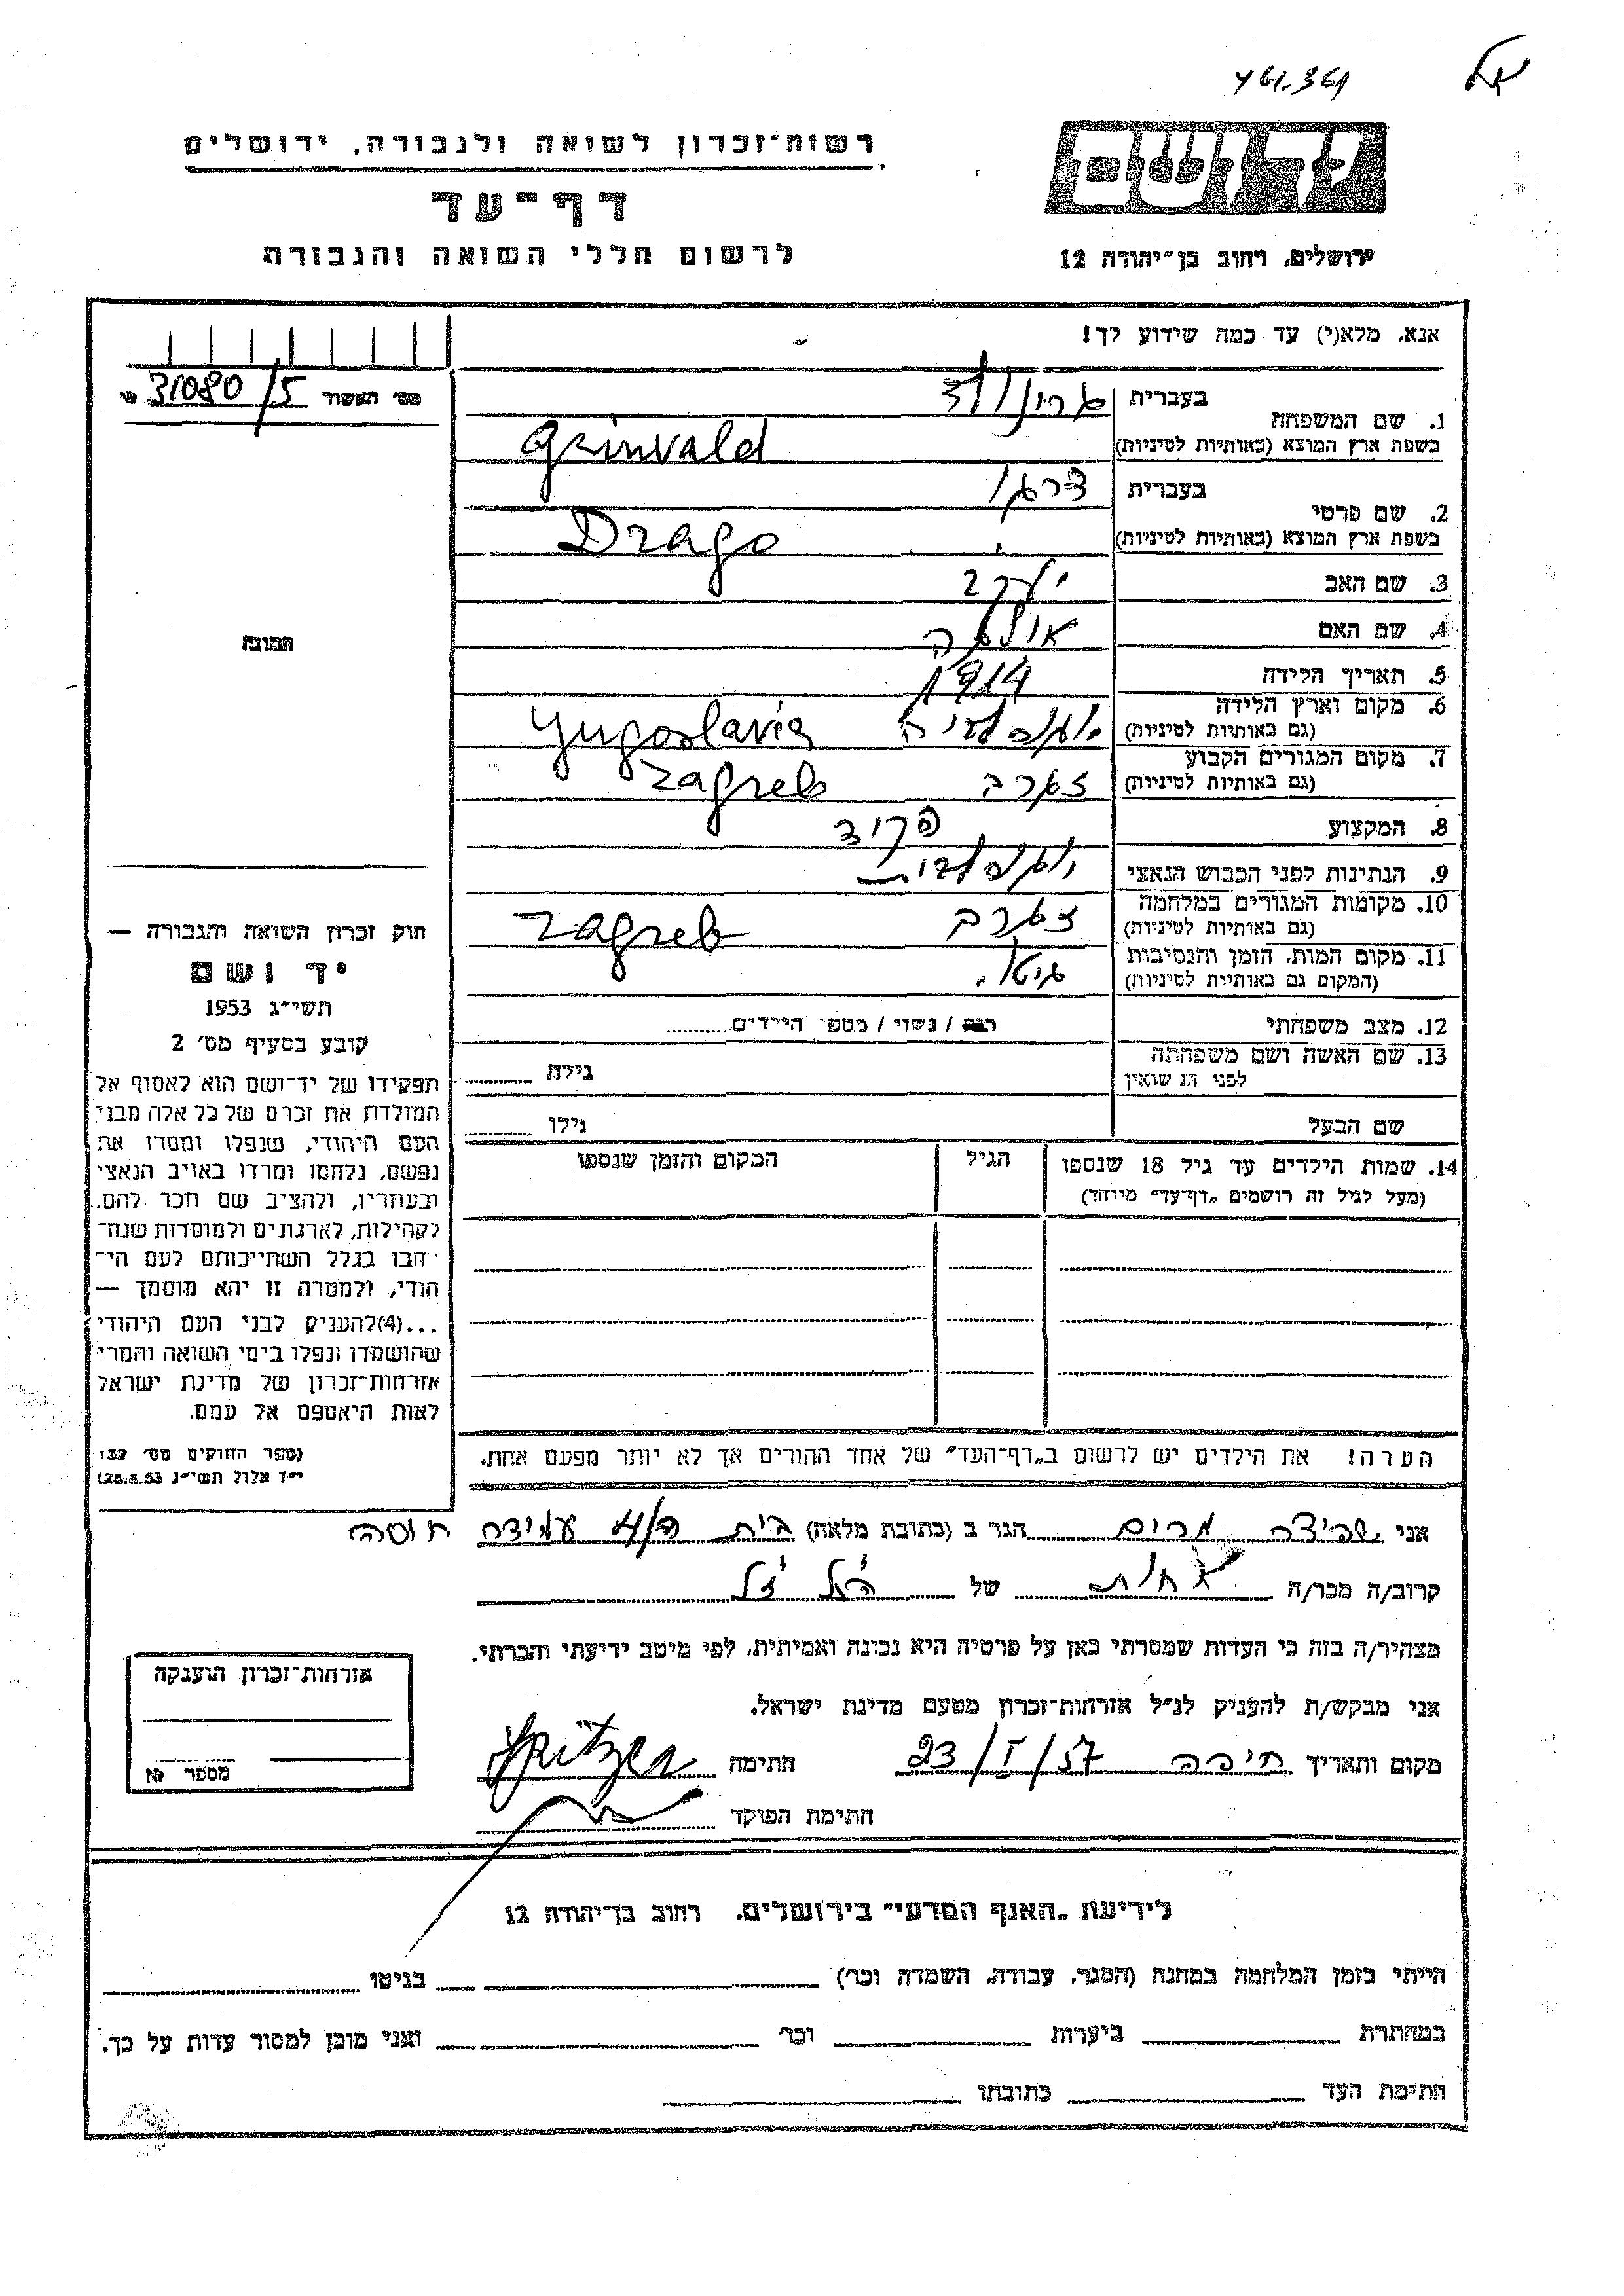 461.361
רשות־זכרון לשואה ולגבורה, ירושלים
דף־עד
לרשום חללי השואה והגבורה
יד ושם
ירושלים, רחוב בן־יהודה 12
אנא, מלא(י) עד כמה שידוע לך!
מס׳ האשור 31080/5
1. שם המשפחה
בעברית גרינולד
בשפת ארץ המוצא (באותיות לטיניות) Grinvald
2. שם פרטי
בעברית דרגו
בשפת ארץ המוצא (באותיות לטיניות) Drago
3. שם האב יעקב
4. שם האם אולגה
5. תאריך הלידה 1914
6. מקום וארץ הלידה
(גם באותיות לטיניות) יוגוסלביה Yugoslavia
7. מקום המגורים הקבוע
(גם באותיות לטיניות) זגרב Zagreb
8. המקצוע פקיד
9. הנתינות לפני הכבוש הנאצי יוגוסלבית
10. מקומות המגורים במלחמה
(גם באותיות לטיניות) זגרב Zagreb
11. מקום המות, הזמן והנסיבות
(המקום גם באותיות לטיניות)
12. מצב משפחתי רווק / נשוי / מספר הילדים
13. שם האשה ושם משפחתה
לפני הנשואין גילה
שם הבעל גילו
14. שמות הילדים עד גיל 18 שנספו
(מעל לגיל זה רושמים „דף־עד” מיוחד)
הגיל
המקום והזמן שנספו
הערה! את הילדים יש לרשום ב„דף־העד” של אחד ההורים אך לא יותר מפעם אחת.
התמונה
חוק זכרון השואה והגבורה —
יד ושם
תשי״ג 1953
קובע בסעיף מס׳ 2
תפקידו של יד־ושם הוא לאסוף אל
המולדת את זכרם של כל אלה מבני
העם היהודי, שנפלו ומסרו את
נפשם, נלחמו ומרדו באויב הנאצי
ובעוזריו, ולהציב שם וזכר להם,
לקהילות, לארגונים ולמוסדות שנח־
רבו בגלל השתייכותם לעם הי־
הודי, ולמטרה זו יהא מוסמך —
...(4)להעניק לבני העם היהודי
שהושמדו ונפלו בימי השואה והמרי
אזרחות־זכרון של מדינת ישראל
לאות היאספם אל עמם.
(ספר החוקים מס׳ 132
י״ז אלול תשי״ג 28.8.53)
אני שפיצר מרים הגר ב (כתובת מלאה) בית
קרוב/ה מכר/ה אחות של הנ״ל ז״ל
מצהיר/ה בזה כי העדות שמסרתי כאן על פרטיה היא נכונה ואמיתית, לפי מיטב ידיעתי והכרתי.
אני מבקש/ת להעניק לנ״ל אזרחות־זכרון מטעם מדינת ישראל.
מקום ותאריך חיפה 23/I/57 חתימה Spitzer
חתימת הפוקד
אזרחות־זכרון הוענקה
מספר №
לידיעת „האגף המדעי” בירושלים. רחוב בן־יהודה 12
הייתי בזמן המלחמה במחנה (הסגר, עבודה, השמדה וכו׳) בגיטו
במחתרת ביערות וכו׳ ואני מוכן למסור עדות על כך.
חתימת העד כתובתו